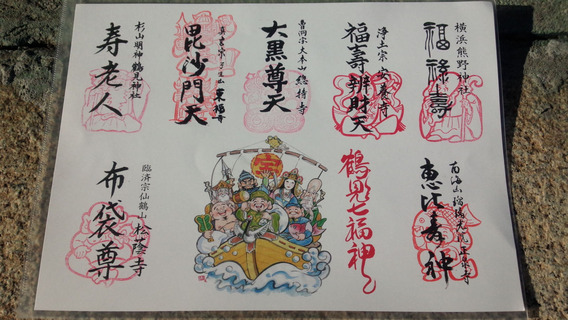 横浜熊野神社
福禄壽
浄土宗 安養寺
福壽辨財天
曹洞宗 大本山 總持寺
大黒尊天
東福寺
毘沙門天
杉山明神 鶴見神社
寿老人
恵比寿神
鶴見七福神
臨済宗 仙鶴山 松蔭寺
布袋尊